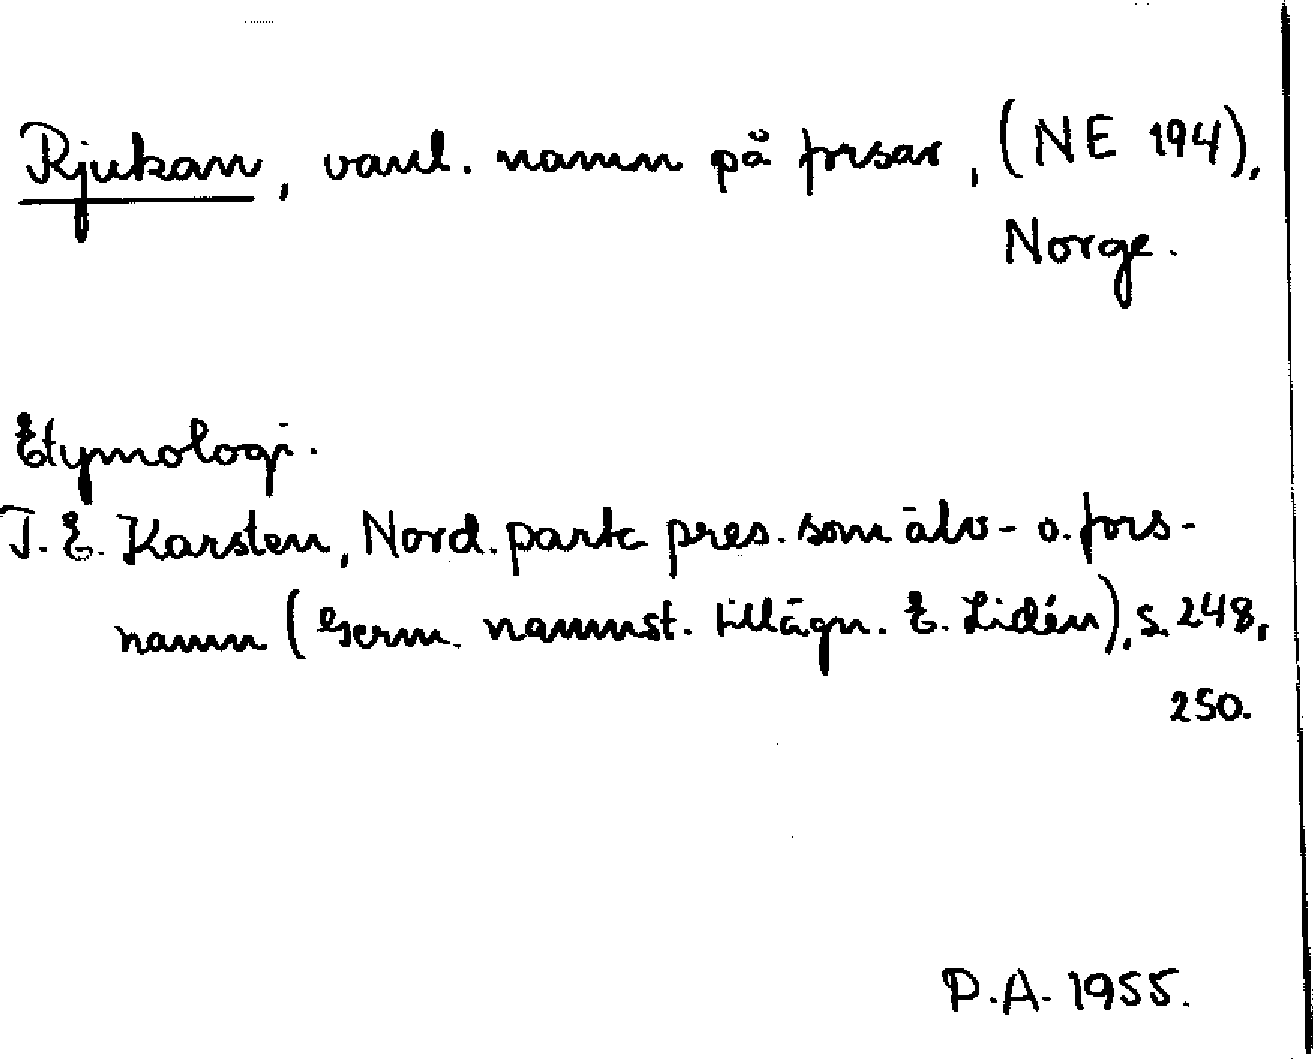 Rjukan, vanl. namn på forsar, (NE 194),
Norge.
Etymologi.
T. E. Karsten, Nord. partc pres. som älv- o. fors-
namn (Germ. namnst. tillägn. E. Lidén), s. 248,
250.
P.A. 1955.